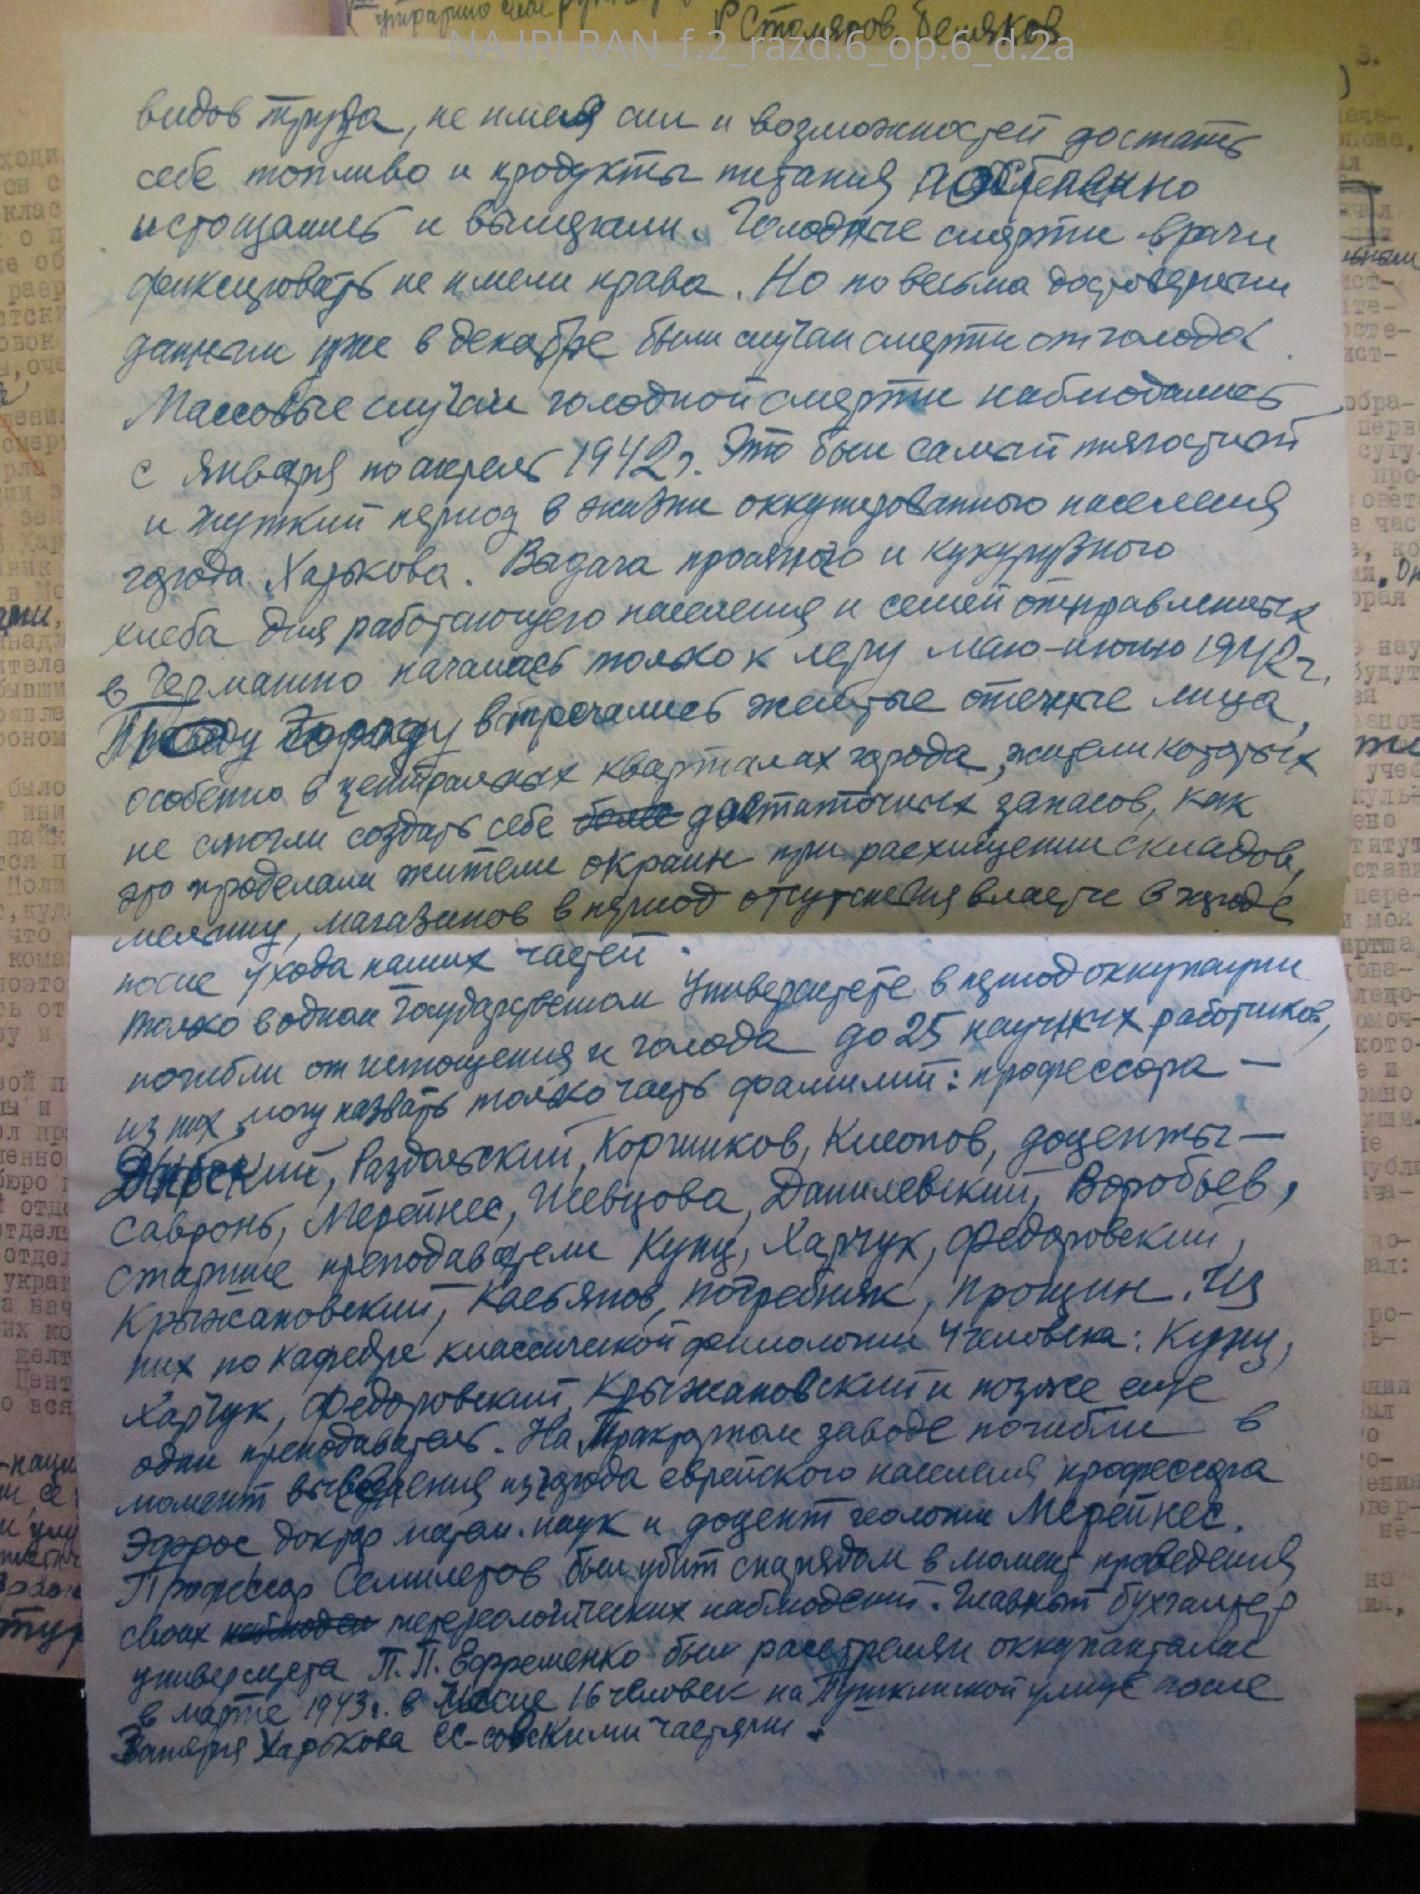 Столяров. Беляков
NA IRI RAN_f.2_razd.6_op.6_d.2a
видов труда, не имея сил и возможностей достать
себе топливо и продукты питания постепенно
истощались и вымерзали. Голодные смерти врачи
фиксировать не имели права. Но по весьма достоверным
данным уже в декабре были случаи смерти от голода.
Массовые случаи голодной смерти наблюдались
с января по апрель 1942 г. Это был самый тягостный
и жуткий период в жизни оккупированного населения
города Харькова. Выдача просяного и кукурузного
хлеба для работающего населения и семей отправленных
в Германию началась только к лету маю-июню 1942 г.
городу встречались желтые отечные лица,
особенно в центральных кварталах города, жители которых
не смогли создать себе более достаточных запасов, как
это проделали жители окраин при расхищении складов,
мельниц, магазинов в период отсутствия власти в городе
после ухода наших частей.
Только в одном Государственном Университете в период оккупации
погибли от истощения и голода до 25 научных работников,
из них могу назвать только часть фамилий: профессора —
Раздольский, Коршиков, Клопов, доценты —
Савронь, Мерейнес, Шевцова, Данилевский, Воробьев,
старшие преподаватели Кунц, Харчук, Федоровский,
Крыжановский, Касьянов, Потребняк, Прощин. Из
них по кафедре классической филологии 4 человека: Кунц,
Харчук, Федоровский, Крыжановский и позже еще
один преподаватель. На Тракторном заводе погибли в
момент выселения из города еврейского населения профессора
Эфрос доктор матем. наук и доцент геологии Мерейнес.
Профессор Семилетов был убит снарядом в момент проведения
своих наблюден метереологических наблюдений. Главный бухгалтер
университета П.П. Ефременко был расстрелян оккупантами
в марте 1943 г. в числе 16 человек на Пушкинской улице после
Занятия Харькова СС-совскими частями.